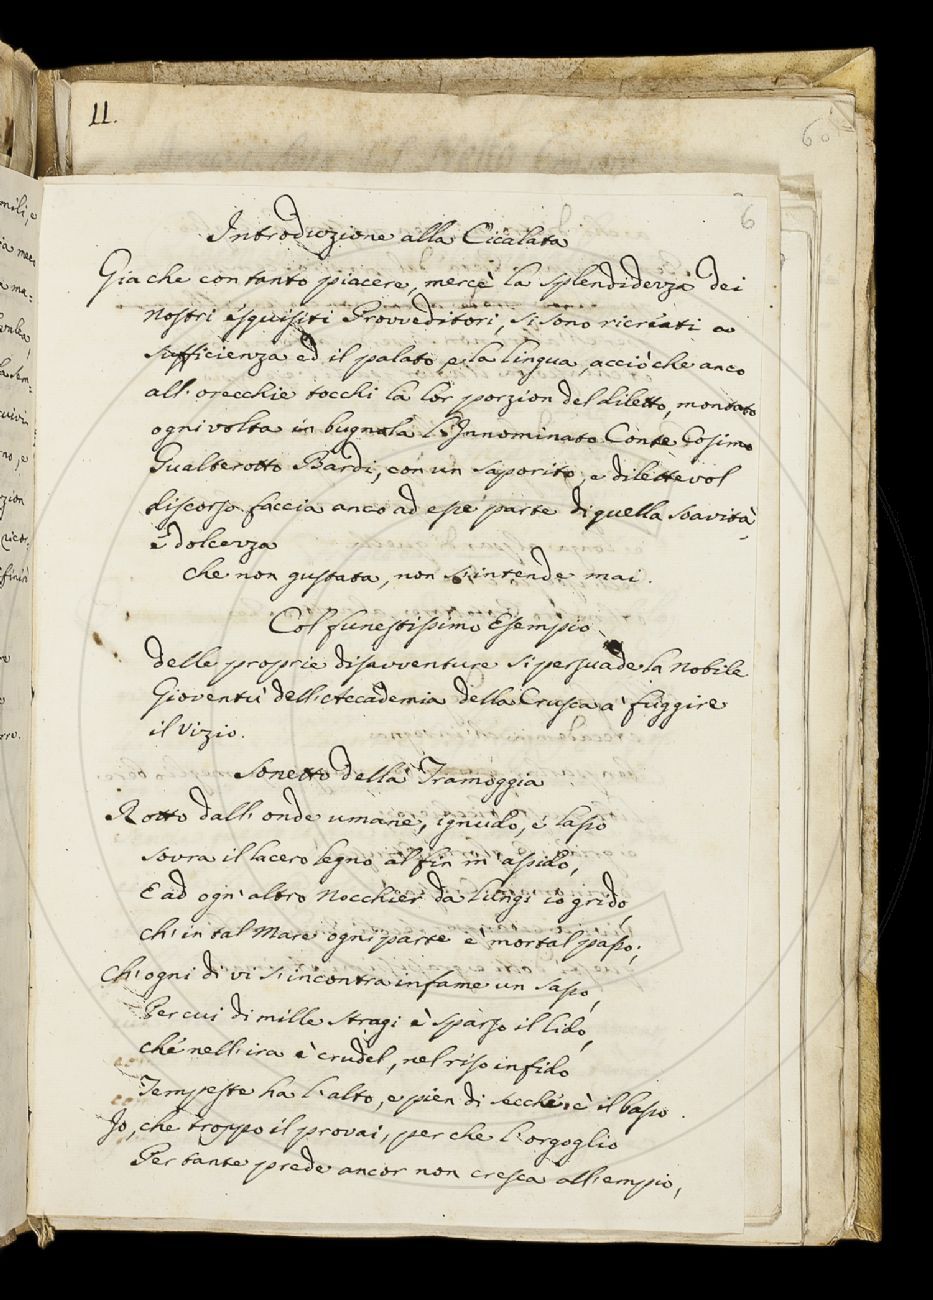 11.
60
6
Introduzione alla Cicalata
Gia che con tanto piacere, mercè la splendidezza dei
nostri esquisiti Provveditori, si sono ricreati a
sufficienza ed il palato e la lingua, acciò che anco
all'orecchie tocchi la lor porzion del diletto, montato
ogni volta in bugnola l'Innominato Conte Cosimo
Gualterotto Bardi, con un saporito, e dilettevol
discorso faccia anco ad esse parte di quella soavità,
e dolcezza
che non gustata, non s'intende mai.
Col funestissimo Esempio
delle proprie disavventure si persuade la Nobile
Gioventù dell'Accademia della Crusca a fuggire
il Vizio.
Sonetto della Tramoggia
Rotto dall'onde umane, ignudo, e lasso
sovra il lacero legno alfin m'assido,
E ad ogn'altro Nocchier da lungi io grido,
ch'in tal Mare ogni parte è mortal passo;
Ch'ogni dì vi s'incontra infame un sasso,
Per cui di mille stragi è sparso il lido,
ché nell'ira è crudel, nel riso infido
Tempeste ha l'alto, e pien di secche è il basso.
Io, che troppo il provai, perche l'orgoglio
Per tante prede ancor non cresca all'empio,